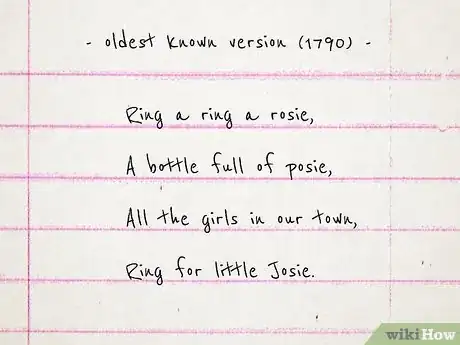 - oldest known version (1790) -
Ring a ring a rosie,
A bottle full of posie,
All the girls in our town,
Ring for little Josie.
wikiHow